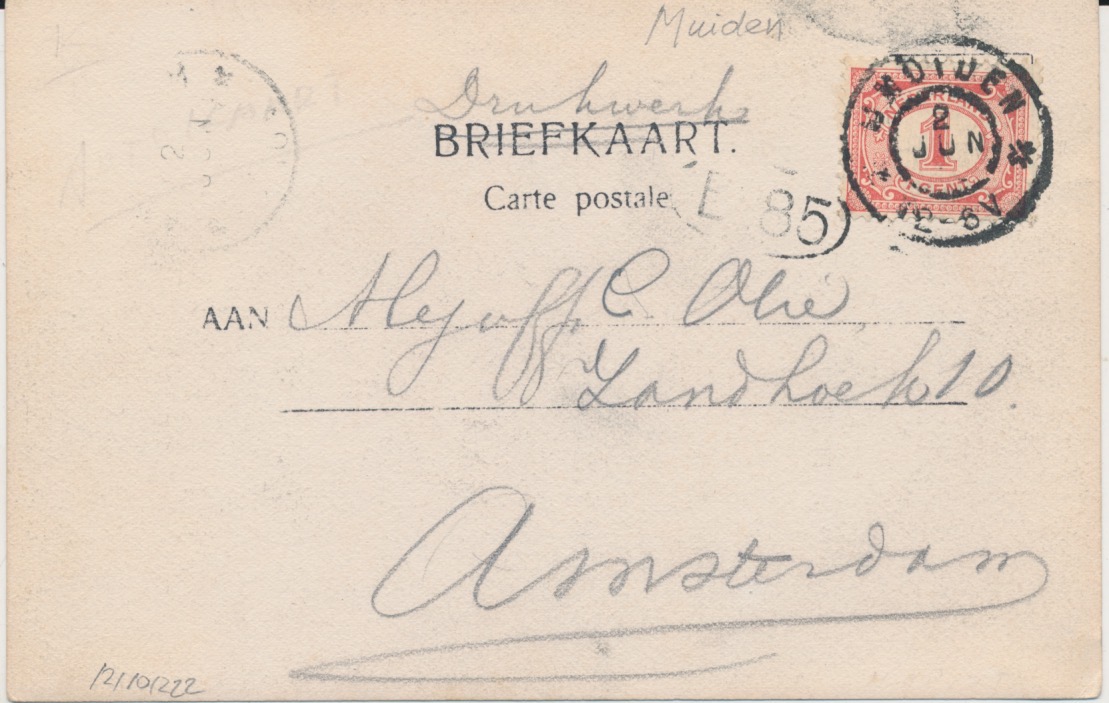 Muiden
Drukwerk
BRIEFKAART.
Carte postale
MUIDEN
2
JUN
12-6V
1
CENT
E 85
AAN Mejuff. C Olie,
Zandhoek 10.
Amsterdam